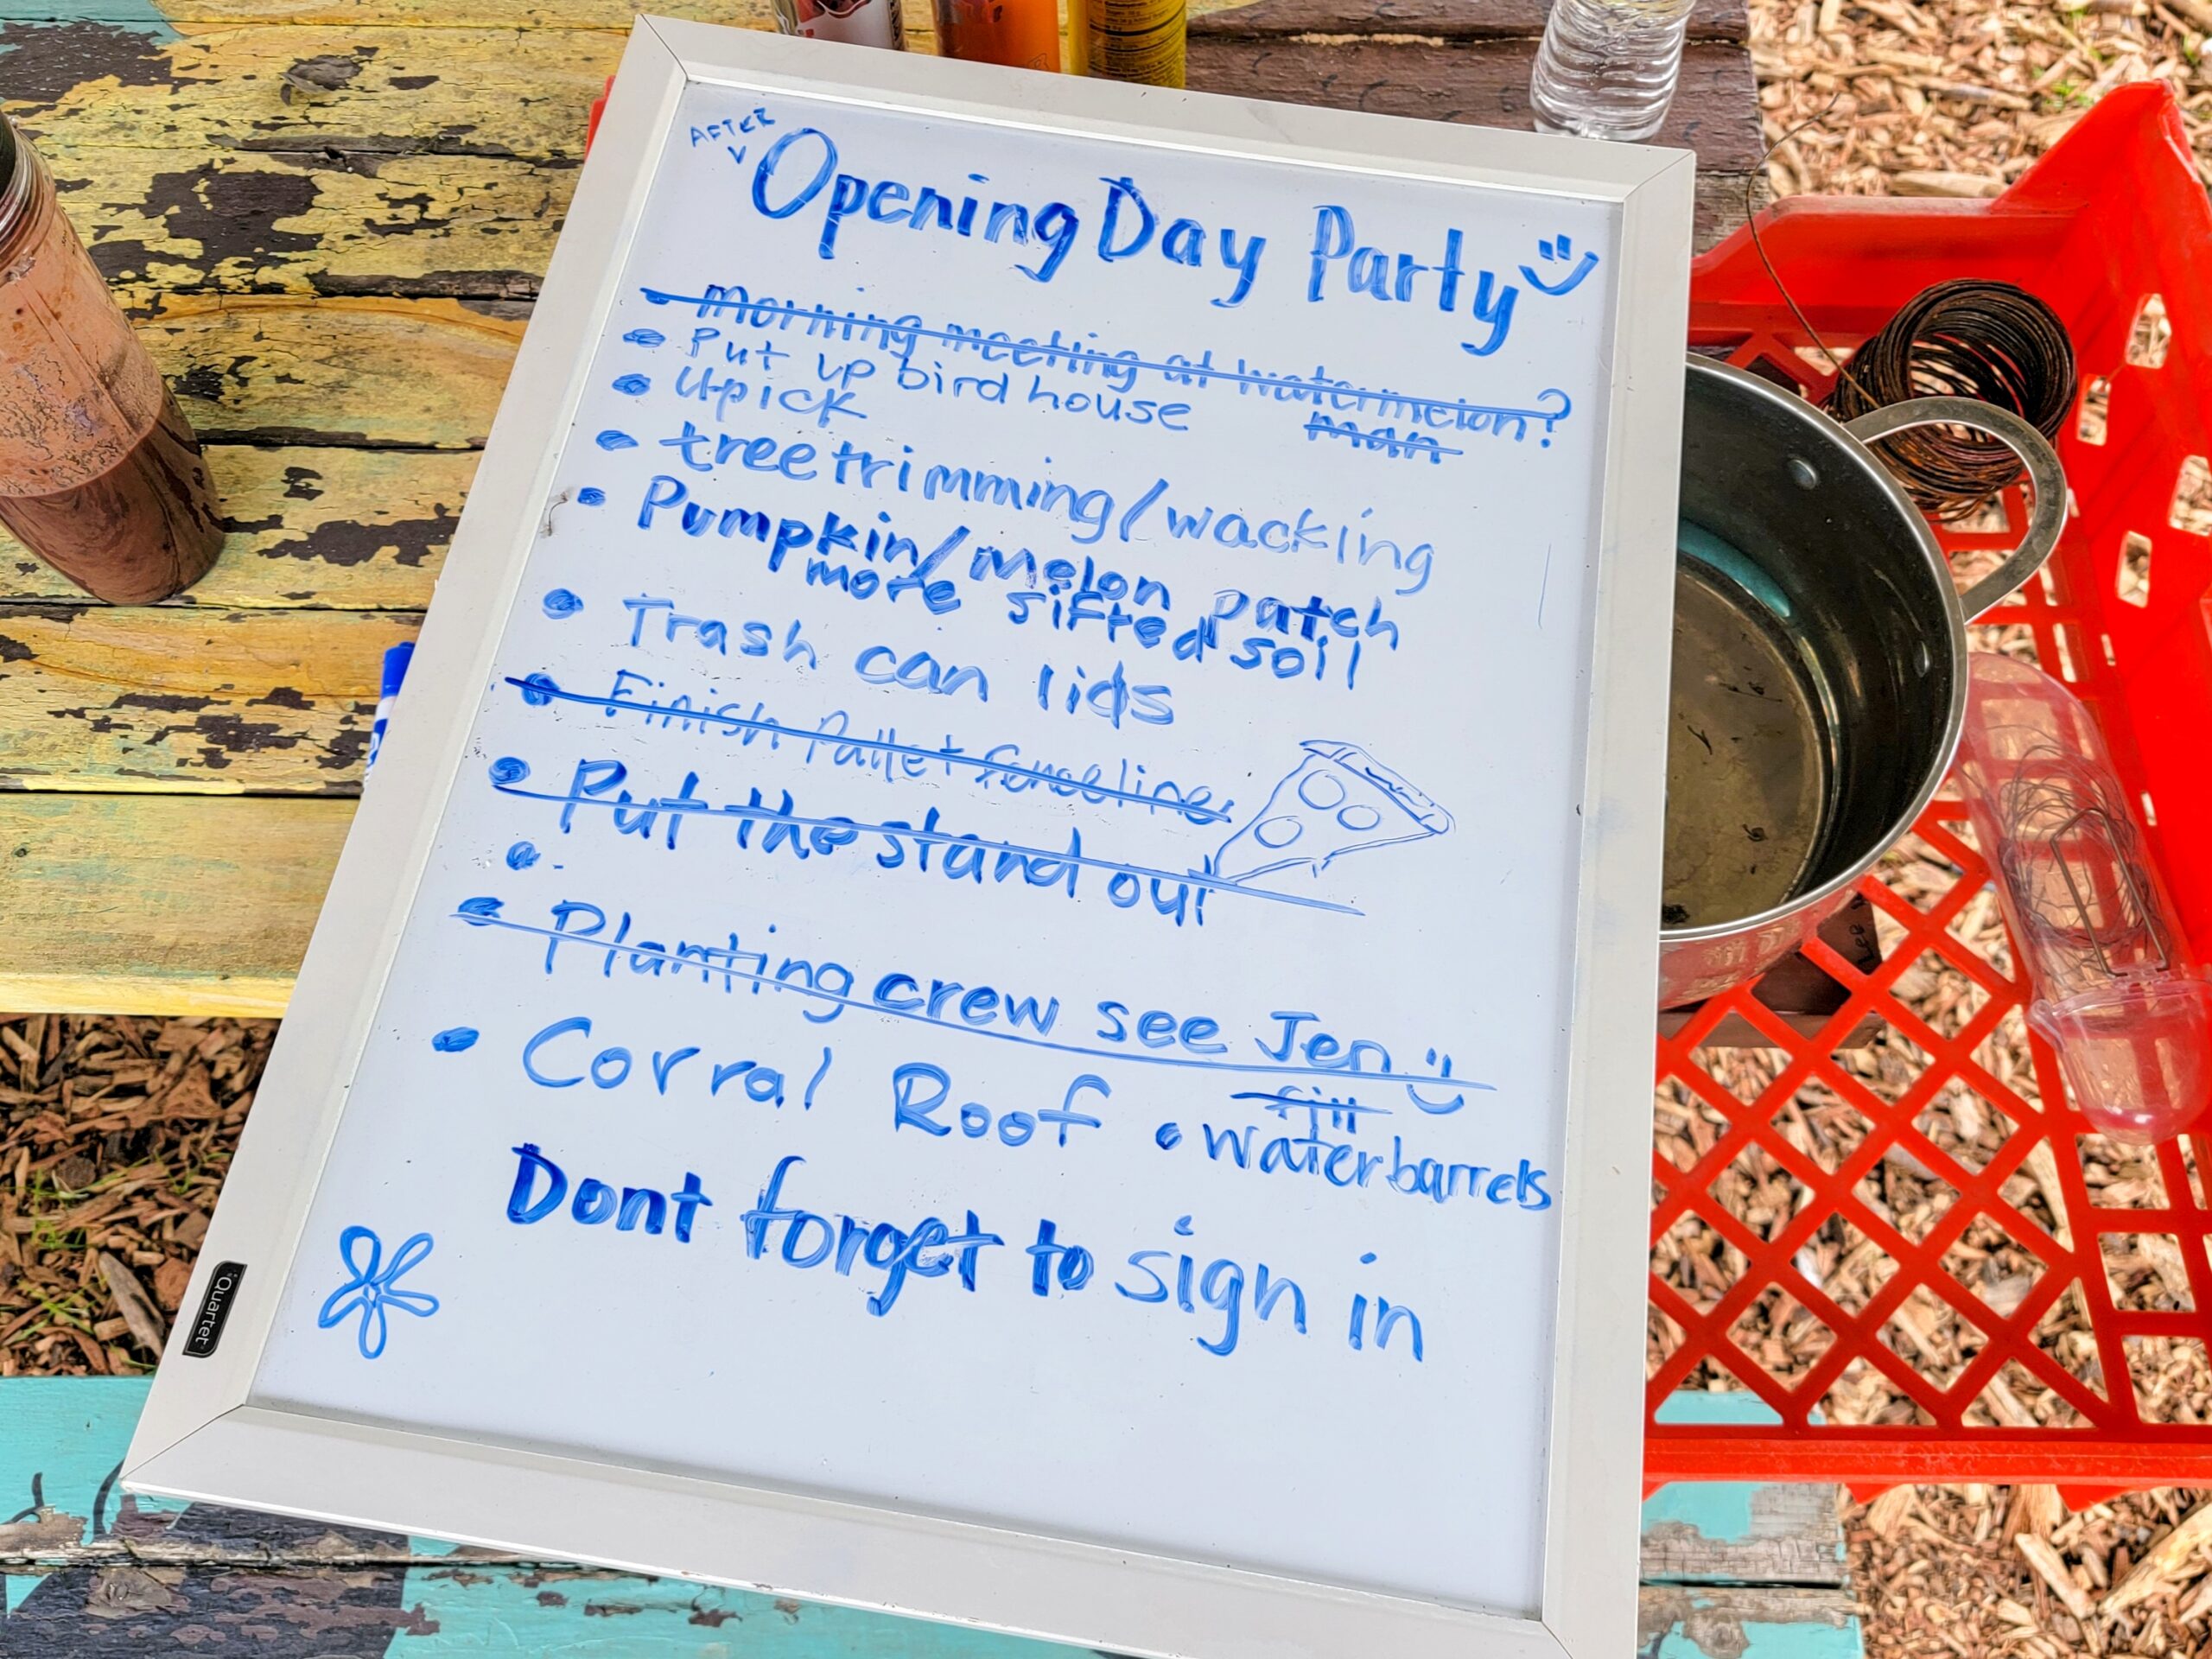 AFTER
Opening Day Party
• morning meeting at watermelon?
man
• Put up bird house
• U-pick
• tree trimming/wacking
• Pumpkin/melon patch
more sifted soil
• Trash can lids
• Finish Pallet fenceline
• Put the stand out
•
• Planting crew see Jen
• Corral Roof
fill
• water barrels
Dont forget to sign in
Quartet